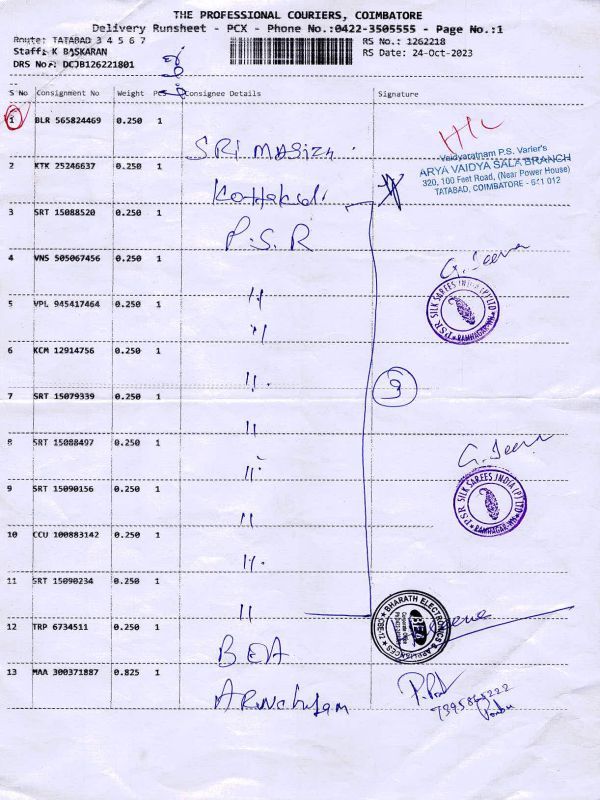 THE PROFESSIONAL COURIERS, COIMBATORE
Delivery Runsheet - PCX - Phone No.:0422-3505555 - Page No.:1
Route: TATABAD 3 4 5 6 7
Staff: K BASKARAN
DRS No.: DCJB126221801
RS No.: 1262218
RS Date: 24-Oct-2023
S No Consignment No Weight Pcs Consignee Details Signature
1 BLR 565824469 0.250 1
SRI
H/C
Vaidyaratnam P.S. Varier's
ARYA VAIDYA SALA BRANCH
320, 100 Feet Road, (Near Power House)
TATABAD, COIMBATORE - 641 012
2 KTK 25246637 0.250 1 Kottakal
3 SRT 15088520 0.250 1 P.S.R
4 VNS 505067456 0.250 1 "
G. Jeeva
PSR SILK SAREES INDIA (P) LTD
RAMNAGAR
5 VPL 945417464 0.250 1 "
6 KCM 12914756 0.250 1 "
9
7 SRT 15079339 0.250 1 "
8 SRT 15088497 0.250 1 "
G. Jeeva
PSR SILK SAREES INDIA (P) LTD
RAMNAGAR
9 SRT 15090156 0.250 1 "
10 CCU 100883142 0.250 1 "
11 SRT 15090234 0.250 1 "
BHARATH ELECTRONICS & APPLIANCES
BEA
CBE-12
12 TRP 6734511 0.250 1 BEA
13 MAA 300371887 0.825 1 Arunchalam